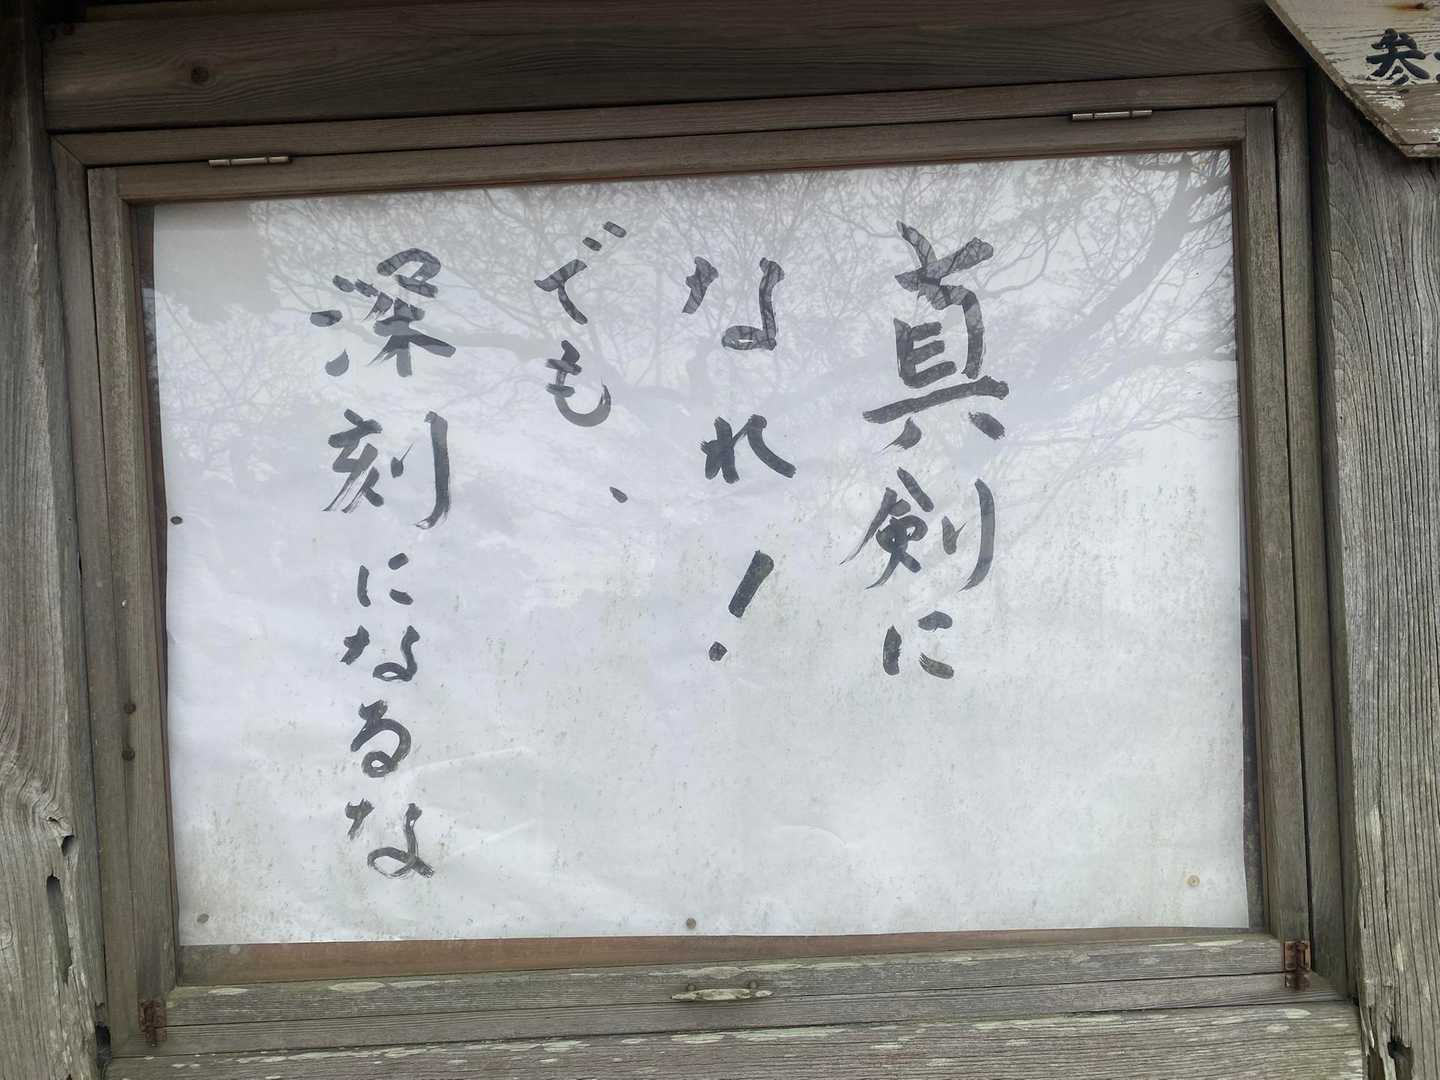 真剣に
なれ!
でも、
深刻になるな
参